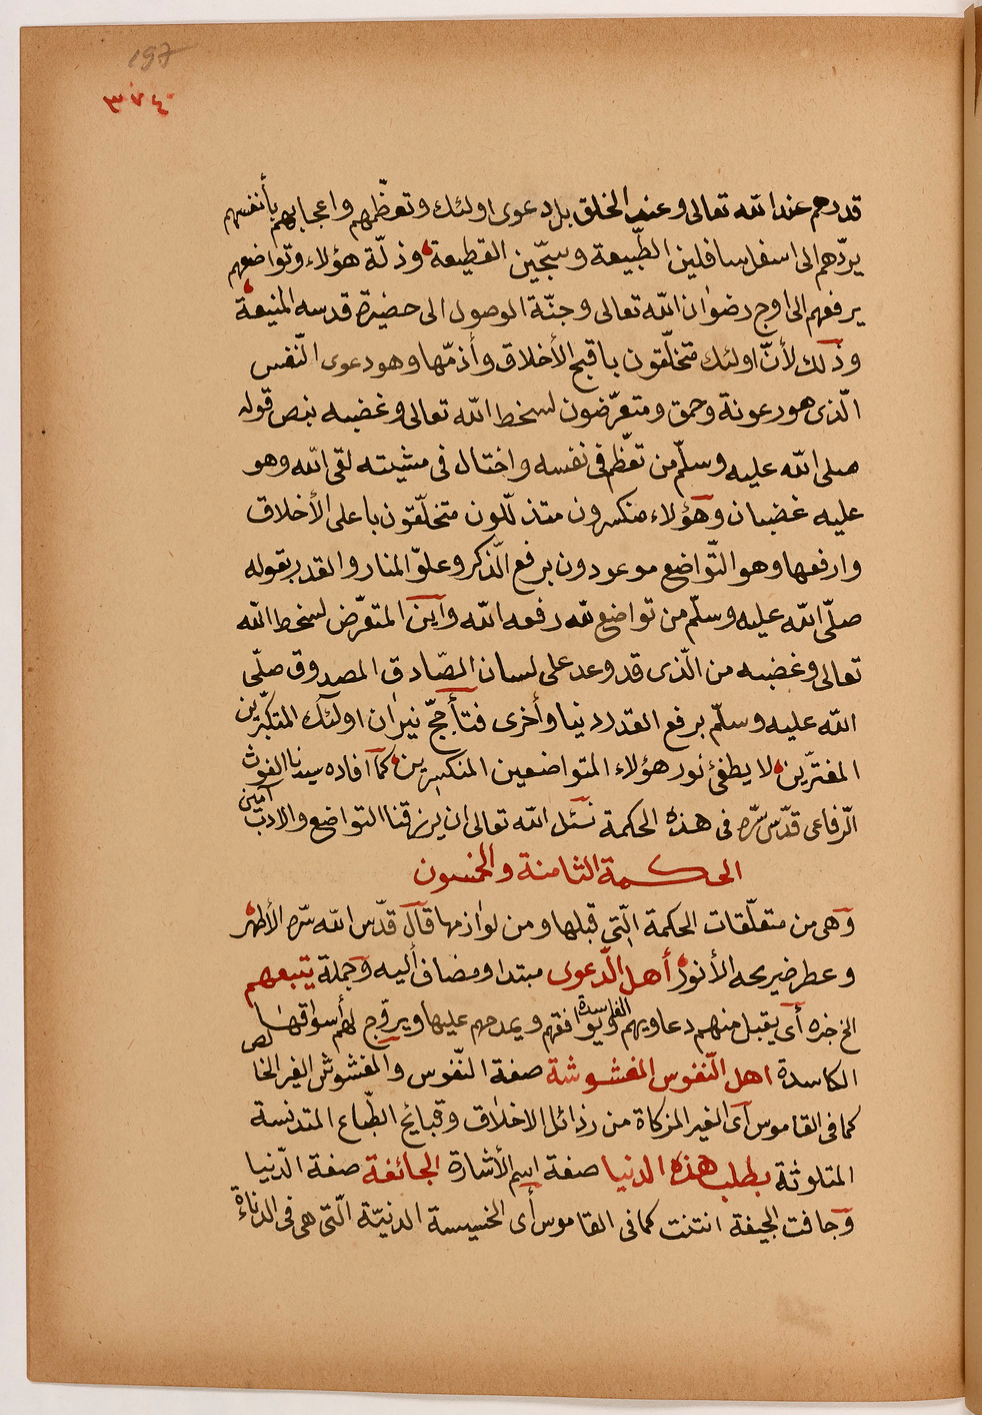 197
٣٧٤
قدرهم عند الله تعالى وعند الخلق بل دعوى اولئك وتعظّمهم واعجابهم بأنفسهم
يردّهم الى اسفل سافلين الطّبيعة وسجّين القطيعة وذلّة هؤلاء وتواضعهم
يرفعهم الى اوج رضوان الله تعالى وجنّة الوصول الى حضيرة قدسه المنيعة
وذلك لأنّ اولئك متخلّقون باقبح الأخلاق وأذمّها وهو دعوى النّفس
الّذى هو رعونة وحمق ومتعرّضون لسخط الله تعالى وغضبه بنص قوله
صلى الله عليه وسلّم من تعظّم فى نفسه واختال فى مشيته لقى الله وهو
عليه غضبان وهؤلاء منكسرون متذلّلون متخلّقون باعلى الأخلاق
وارفعها وهو التّواضع موعودون برفع الّذكر وعلوّ المنار والقدر بقوله
صلّى الله عليه وسلّم من تواضع لله رفعه الله واين المتعرّض لسخط الله
تعالى وغضبه من الّذى قد وعد على لسان الصّادق المصدوق صلّى
الله عليه وسلّم برفع القدر دنيا وأخرى فتأجّج نيران اولئك المتكبّرين
المغترّين لا يطفئ نور هؤلاء المتواضعين المنكسرين كما افاده سيدنا الغوث
الّرفاعى قدّس سّره فى هذه الحكمة نسئل الله تعالى ان يرزقنا التواضع والادب آمين
الحكمة الثامنة والخمسون
وهى من متعلّقات الحكمة الّتى قبلها ومن لوازمها قال قدّس الله سّره الأطهر
وعطر ضريحه الأنور أهل الّدعوى مبتدا ومضاف أليه وجملة يتبعهم
الخ خبره أى يقبل منهم دعاويهم الفاسدة ويوافقهم ويمدحهم عليها ويروّج لهم أسواقها
الكاسدة اهل النّفوس المغشوشة صفة النّفوس والمغشوش الغير الخالص
كما فى القاموس أى الغير المزكاة من رذائل الاخلاق وقبايح الطّباع المتدنسة
المتلوثة بطلب هذه الدنيا صفة اسم الأشارة الجائفة صفة الدّنيا
وجافت الجيفة انتنت كما فى القاموس أى الخسيسة الدنيّة الّتى هى فى الدناءة